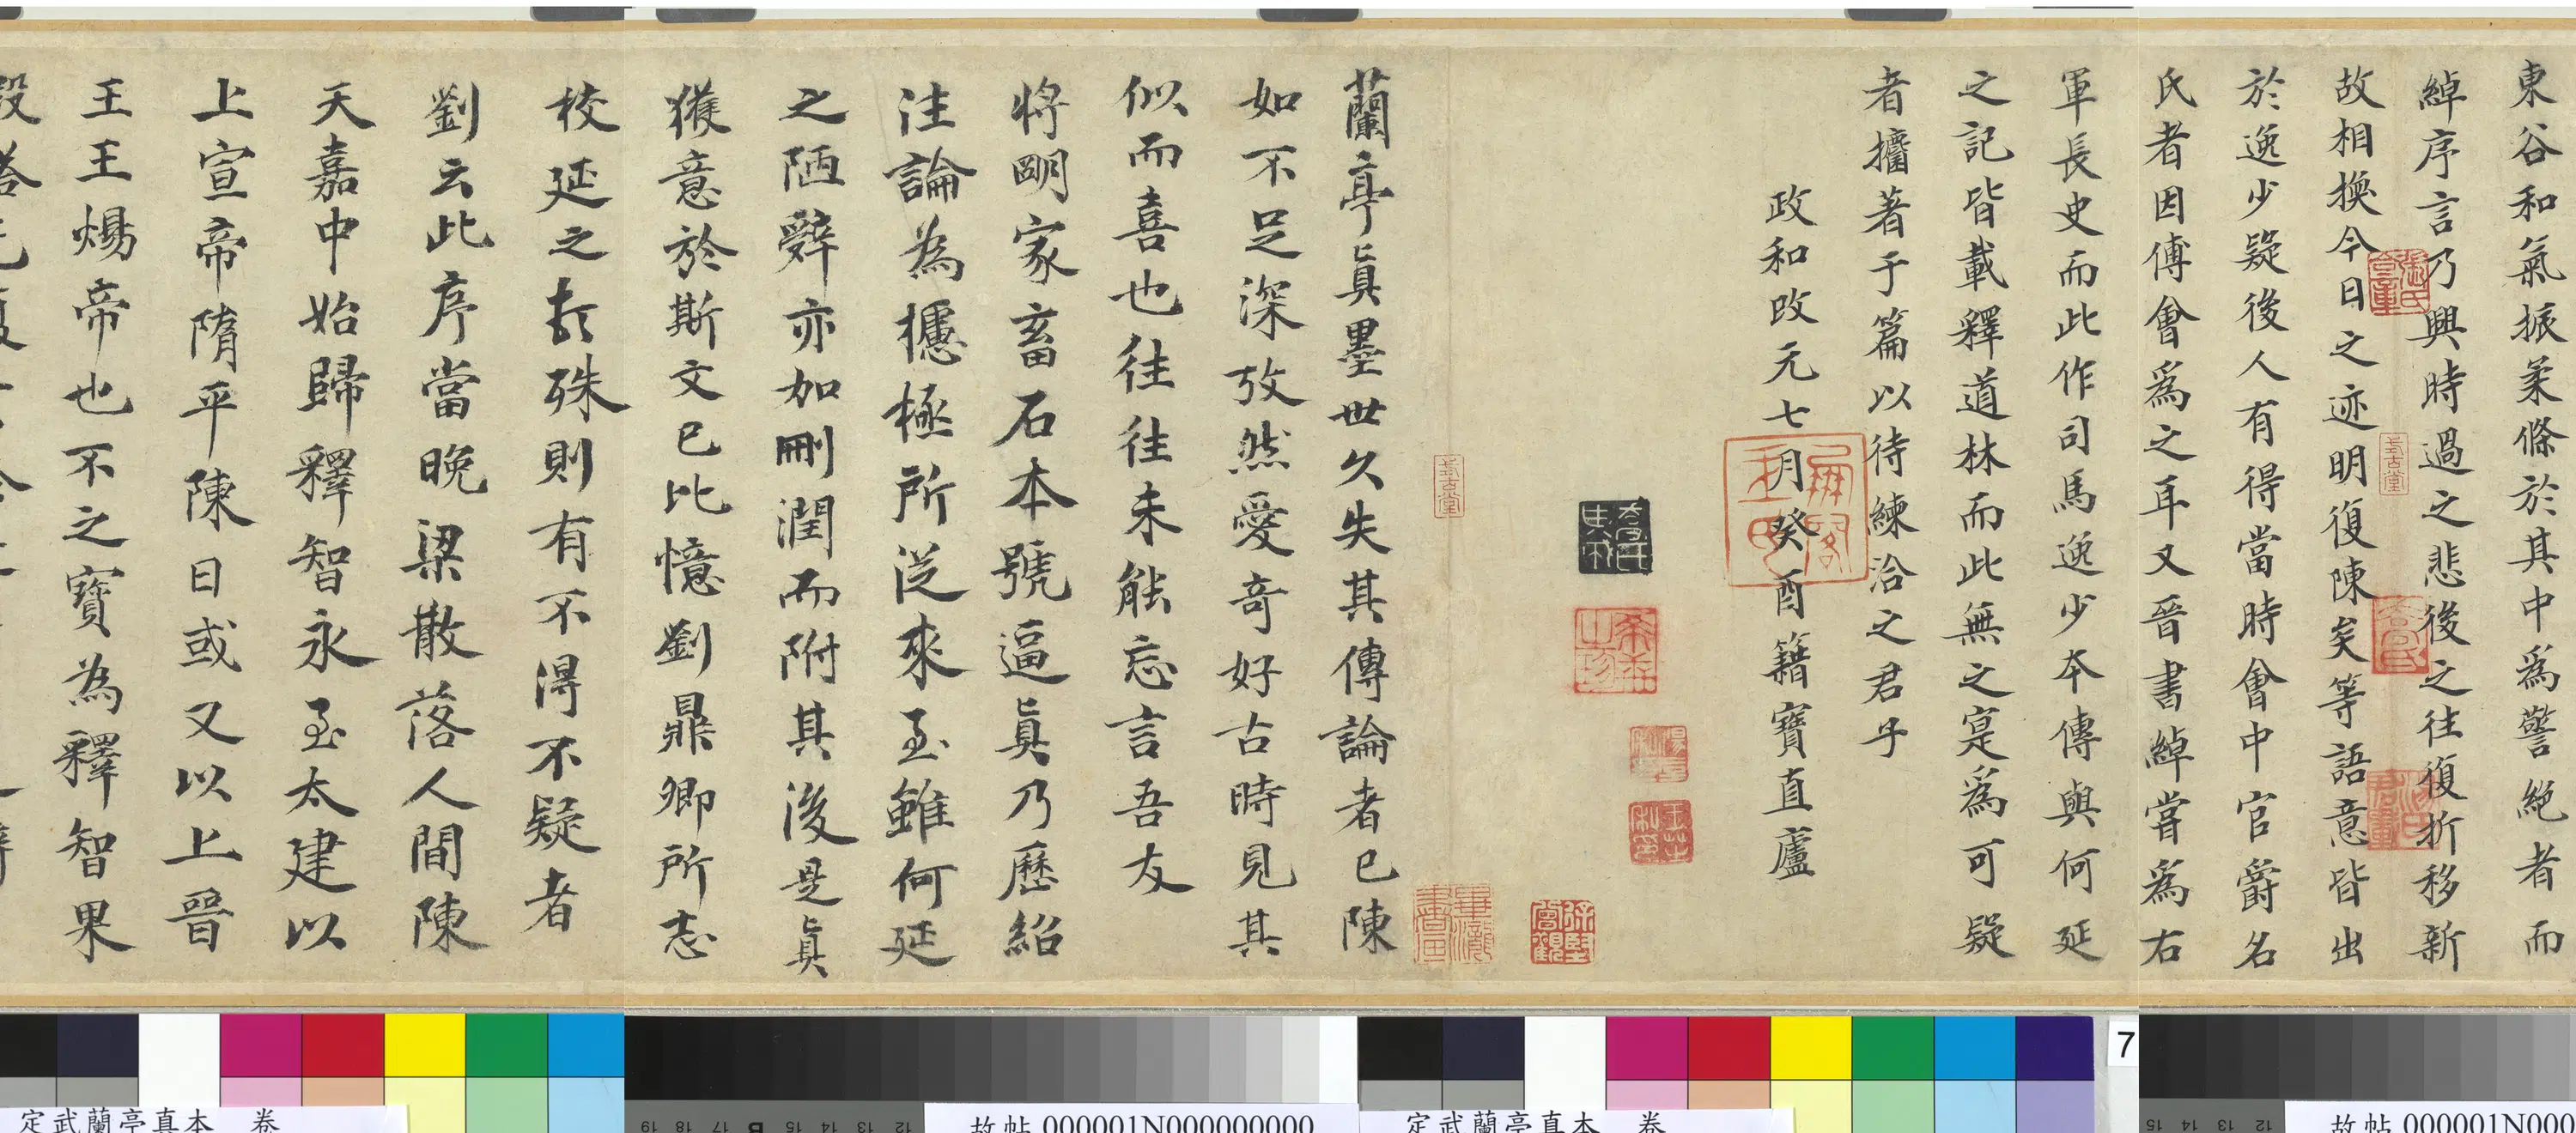 東谷和氣振柔條於其中為警絕者而
綽序言乃興時過之悲後之往復折移新
故相換今日之迹明復陳矣等語意皆出
於逸少疑後人有得當時會中官爵名
氏者因傅會爲之耳又晉書綽嘗爲右
軍長史而此作司馬逸少本傳與何延
之記皆載釋道林而此無之寔爲可疑
者擂著于篇以待練洽之君乎
政和改元七月癸酉籍寶直廬
蘭亭眞墨世久失其傳論者已陳
如不足深攷然愛奇好古時見其
似而喜也往往未能忘言吾友
將明家畜石本號逼眞乃歷紹
注論為攄極所從來至雖何延
之陋辭亦加刪潤而附其後是眞
獲意於斯文已比憶劉鼎卿所志
校延之尤殊則有不得不疑者
劉云此序當晚梁散落人間陳
天嘉中始歸釋智永至太建以
上宣帝隋平陳日或又以上晉
王王煬帝也不之寶為釋智果
7
定武蘭亭真本 卷
故帖 000001N000000000
定武蘭亭真本 卷
故帖 000001N000